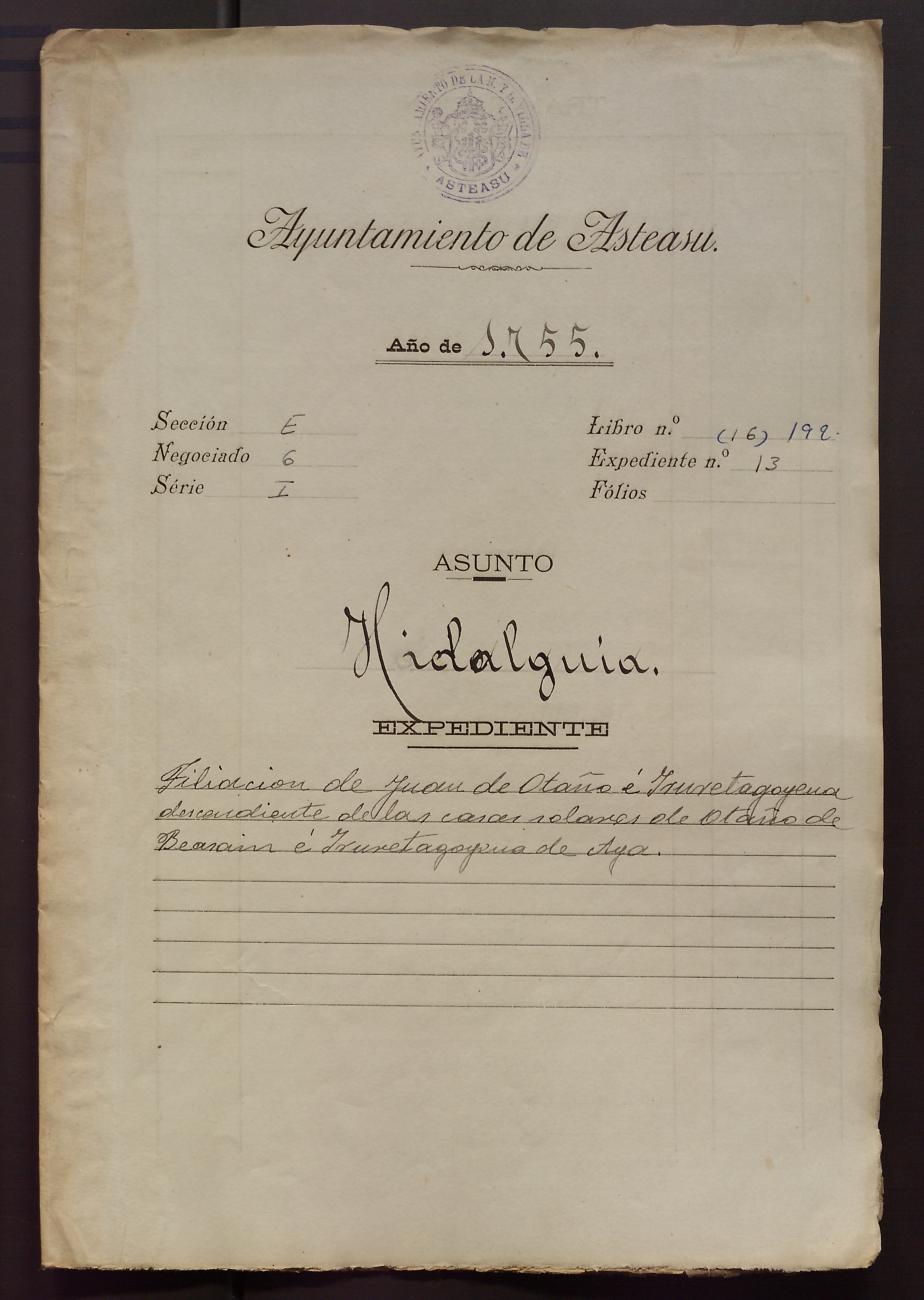 AYUNTAMIENTO DE LA N. Y L. VILLA DE
ASTEASU
Ayuntamiento de Asteasu.
Año de 1.755.
Sección E
Negociado 6
Série I
Libro n.º (16) 192.
Expediente n.º 13
Fólios
ASUNTO
Hidalguia.
EXPEDIENTE
Filiacion de Juan de Otaño é Iruretagoyena
descendiente de las casas solares de Otaño de
Beasain é Iruretagoyena de Aya.